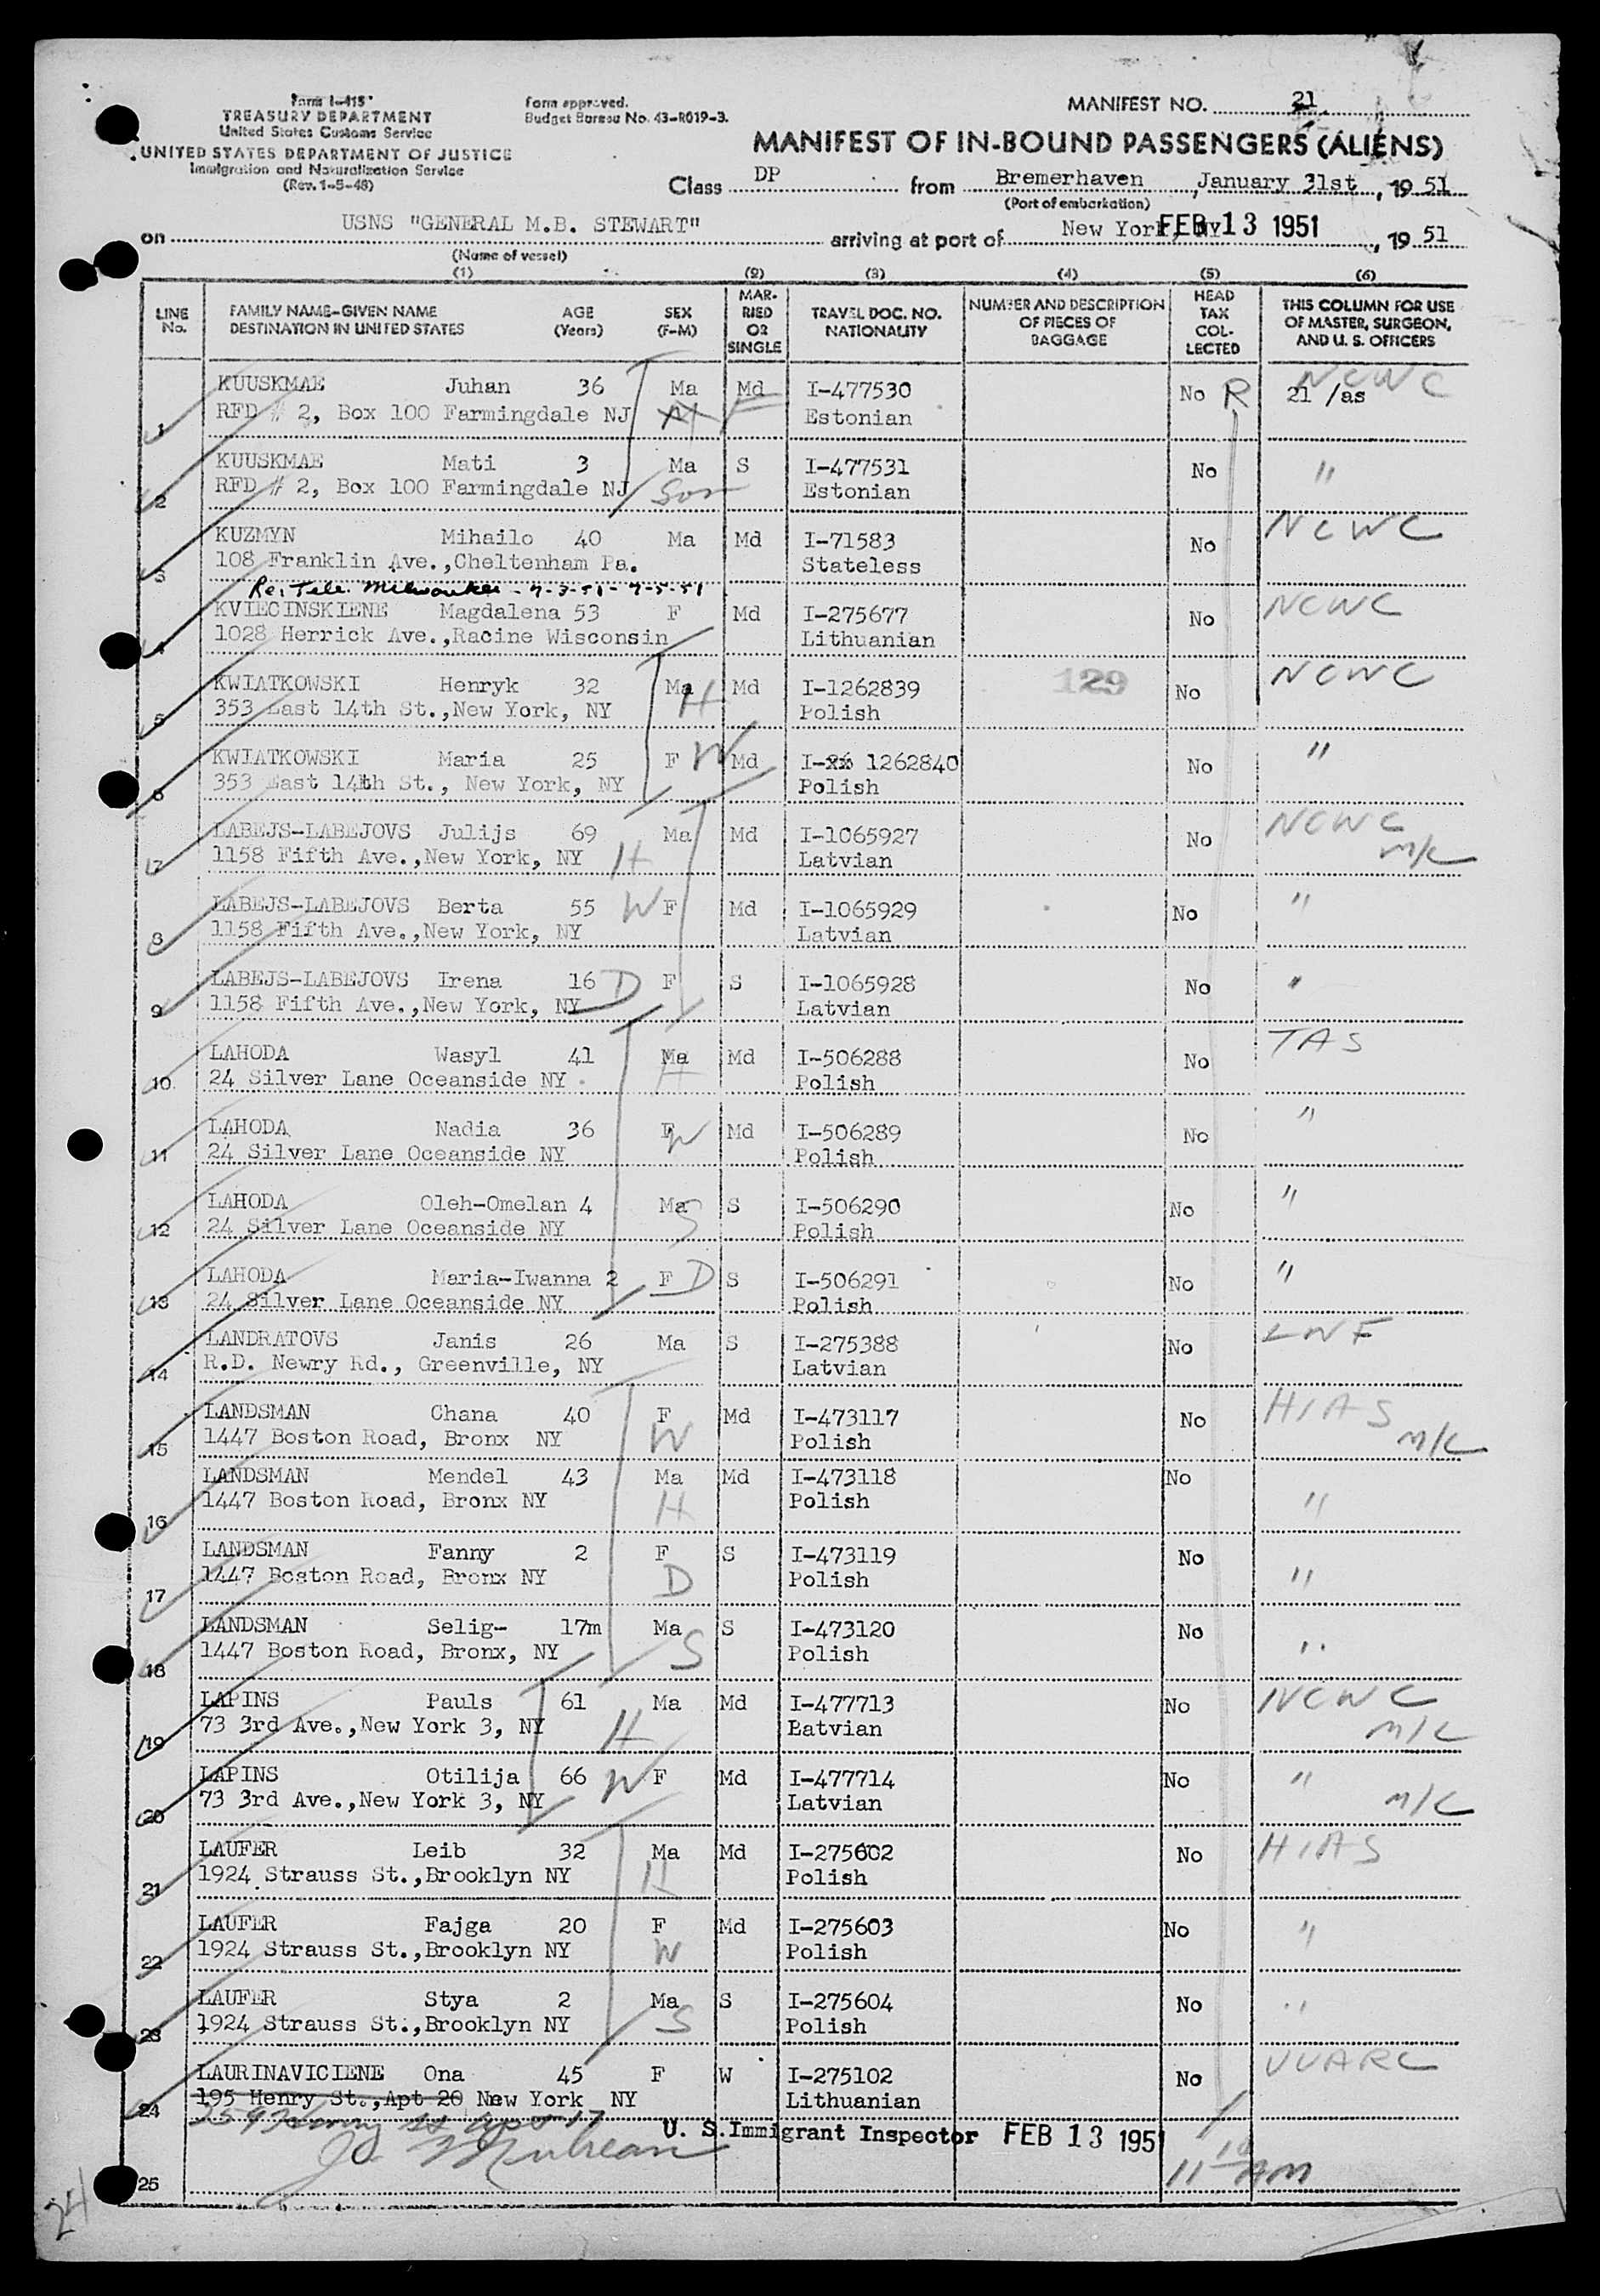 Form I-415
TREASURY DEPARTMENT
United States Customs Service
UNITED STATES DEPARTMENT OF JUSTICE
Immigration and Naturalization Service
(Rev. 1-5-48)
Form approved.
Budget Bureau No. 43-R019-3.
MANIFEST NO. 21
MANIFEST OF IN-BOUND PASSENGERS (ALIENS)
Class DP from Bremerhaven, January 31st, 19 51
(Port of embarkation)
on USNS "GENERAL M.B. STEWART" arriving at port of New York, NY FEB 13 1951, 19 51
(Name of vessel)
(1) (2) (3) (4) (5) (6)
LINE No. FAMILY NAME-GIVEN NAME DESTINATION IN UNITED STATES AGE (Years) SEX (F-M) MARRIED OR SINGLE TRAVEL DOC. NO. NATIONALITY NUMBER AND DESCRIPTION OF PIECES OF BAGGAGE HEAD TAX COLLECTED THIS COLUMN FOR USE OF MASTER, SURGEON, AND U. S. OFFICERS
KUUSKMAE Juhan 36 Ma Md I-477530 No R 21 /as NCWC
1 RFD # 2, Box 100 Farmingdale NJ Estonian
KUUSKMAE Mati 3 Ma S I-477531 No "
2 RFD # 2, Box 100 Farmingdale NJ Son Estonian
KUZMYN Mihailo 40 Ma Md I-71583 No NCWC
3 108 Franklin Ave.,Cheltenham Pa. Stateless
Re: Tele. Milwaukee - 7-3-51 - 7-5-51
KVIECINSKIENE Magdalena 53 F Md I-275677 No NCWC
4 1028 Herrick Ave.,Racine Wisconsin Lithuanian
KWIATKOWSKI Henryk 32 Ma H Md I-1262839 129 No NCWC
5 353 East 14th St.,New York, NY Polish
KWIATKOWSKI Maria 25 F W Md I-xx 1262840 No "
6 353 East 14th St., New York, NY Polish
LABEJS-LABEJOVS Julijs 69 Ma Md I-1065927 No NCWC
7 1158 Fifth Ave.,New York, NY H Latvian M/C
LABEJS-LABEJOVS Berta 55 W F Md I-1065929 No "
8 1158 Fifth Ave.,New York, NY Latvian
LABEJS-LABEJOVS Irena 16 D F S I-1065928 No "
9 1158 Fifth Ave.,New York, NY Latvian
LAHODA Wasyl 41 Ma Md I-506288 No TAS
10 24 Silver Lane Oceanside NY H Polish
LAHODA Nadia 36 F W Md I-506289 No "
11 24 Silver Lane Oceanside NY Polish
LAHODA Oleh-Omelan 4 Ma S S I-506290 No "
12 24 Silver Lane Oceanside NY Polish
LAHODA Maria-Iwanna 2 F D S I-506291 No "
13 24 Silver Lane Oceanside NY Polish
LANDRATOVS Janis 26 Ma S I-275388 No LWF
14 R.D. Newry Rd., Greenville, NY Latvian
LANDSMAN Chana 40 F Md I-473117 No HIAS
15 1447 Boston Road, Bronx NY W Polish M/C
LANDSMAN Mendel 43 Ma Md I-473118 No
16 1447 Boston Road, Bronx NY H Polish "
LANDSMAN Fanny 2 F S I-473119 No
17 1447 Boston Road, Bronx NY D Polish "
LANDSMAN Selig- 17m Ma S I-473120 No
18 1447 Boston Road, Bronx, NY S Polish "
LAPINS Pauls 61 Ma Md I-477713 No NCWC
19 73 3rd Ave.,New York 3, NY H Eatvian M/C
LAPINS Otilija 66 W F Md I-477714 No "
20 73 3rd Ave.,New York 3, NY Latvian M/C
LAUFER Leib 32 Ma Md I-275602 No HIAS
21 1924 Strauss St.,Brooklyn NY H Polish
LAUFER Fajga 20 F Md I-275603 No "
22 1924 Strauss St.,Brooklyn NY W Polish
LAUFER Stya 2 Ma S I-275604 No "
23 1924 Strauss St.,Brooklyn NY S Polish
LAURINAVICIENE Ona 45 F W I-275102 No UUARC
24 195 Henry St.,Apt 20 New York NY Lithuanian
259 Henry St Apt 17
U. S. Immigrant Inspector FEB 13 1951
25 11 10 AM
24